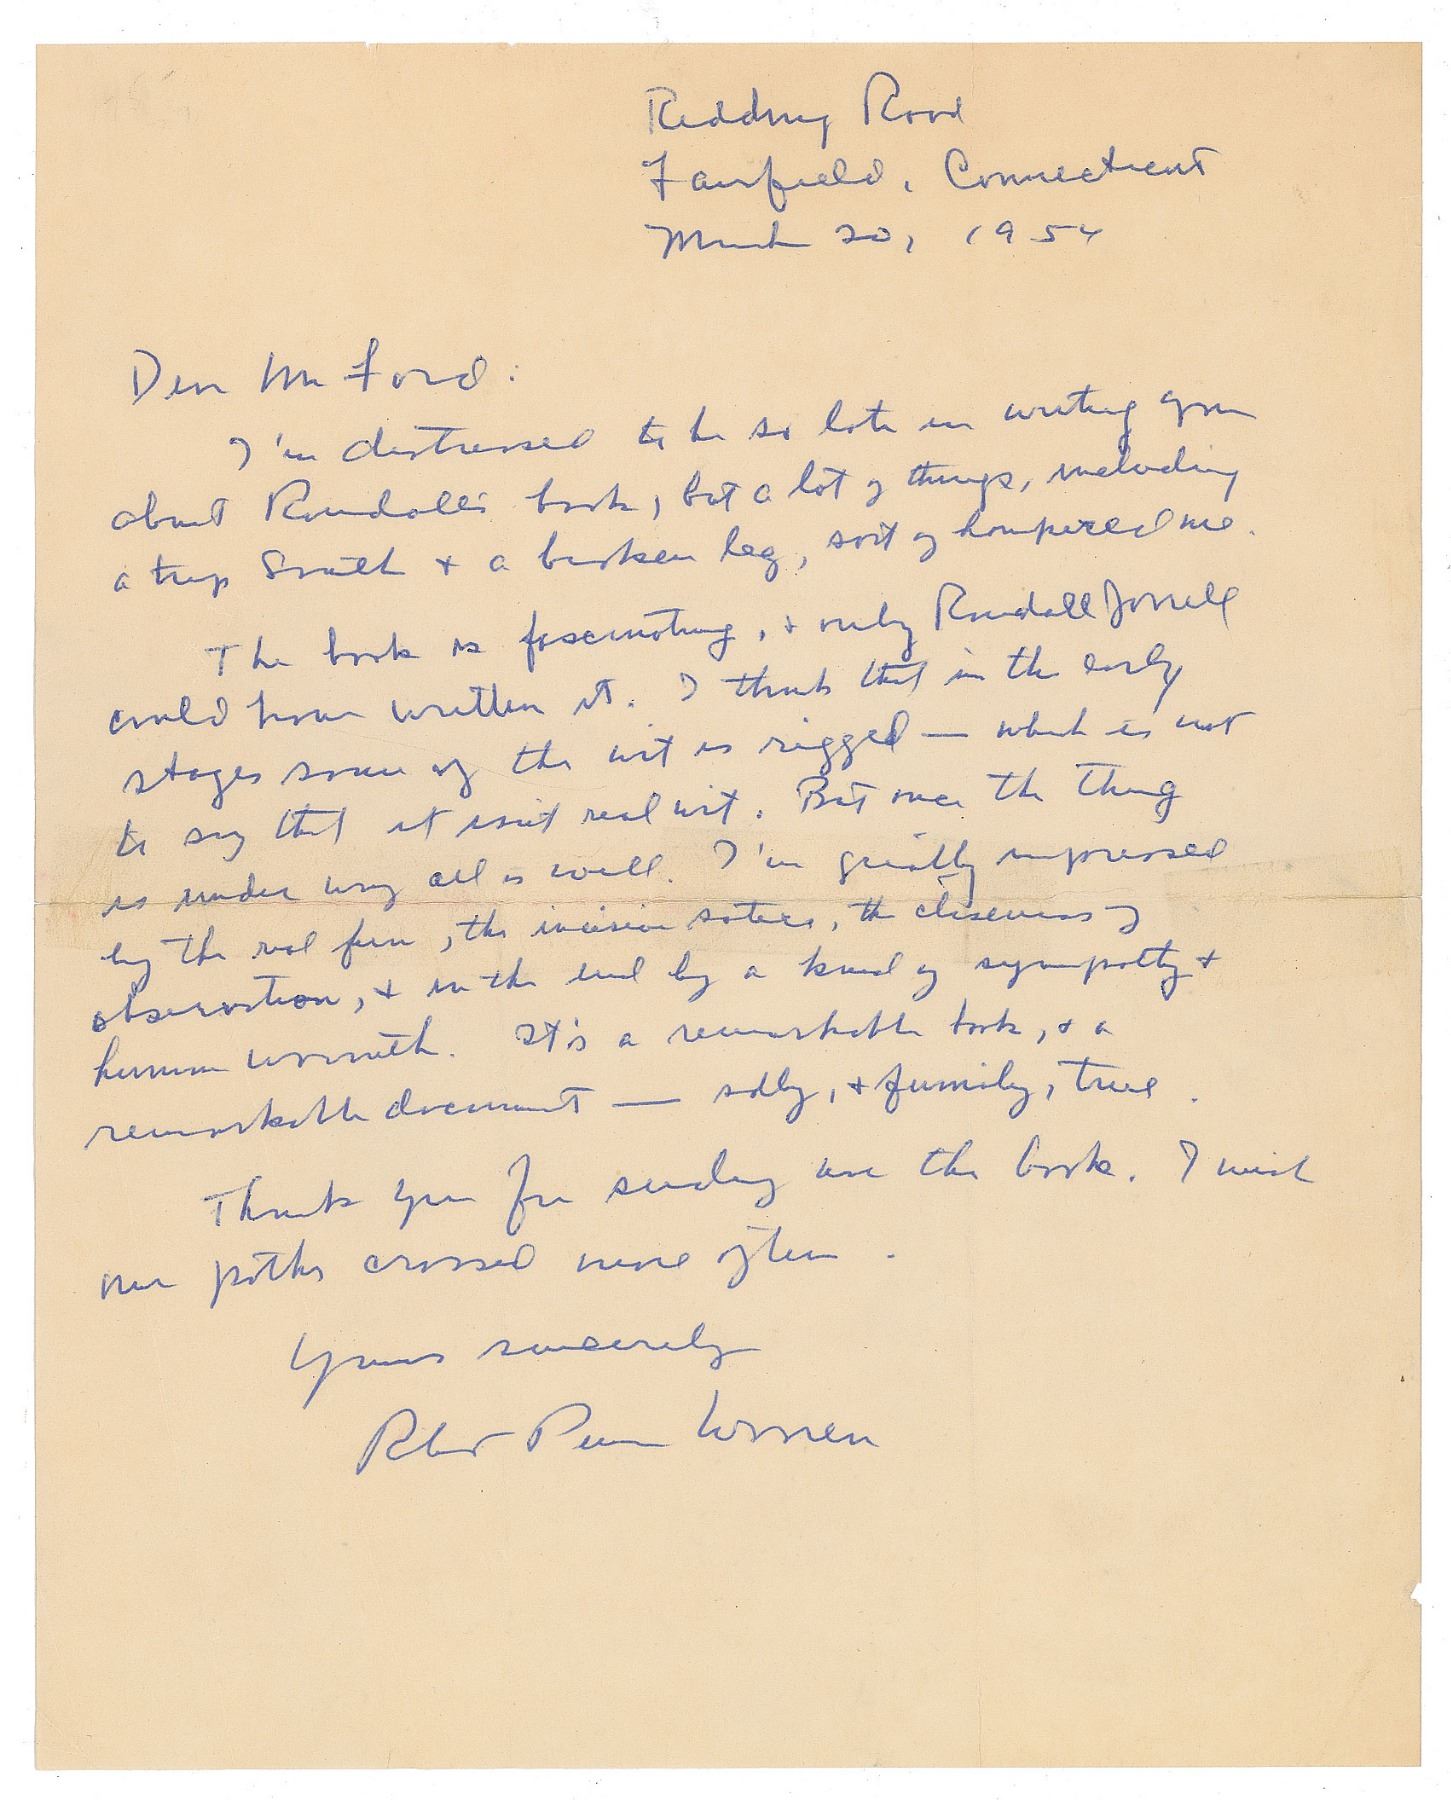 Redding Road
Fairfield, Connecticut
March 20, 1954
Dear Mr Ford:
I'm distressed to be so late in writing you
about Randall's book, but a lot of things, including
a trip South & a broken leg, sort of hampered me.
The book is fascinating, & only Randall Jarrell
could have written it. I think that in the early
stages some of the wit is rigged — which is not
to say that it isn't real wit. But once the thing
is under way all is well. I'm greatly impressed
by the real fun, the incisive satire, the closeness of
observation, & in the end by a kind of sympathy &
human warmth. It's a remarkable book, & a
remarkable document — sadly, & funnily, true.
Thank you for sending me the book. I wish
our paths crossed more often.
Yours sincerely
Robert Penn Warren